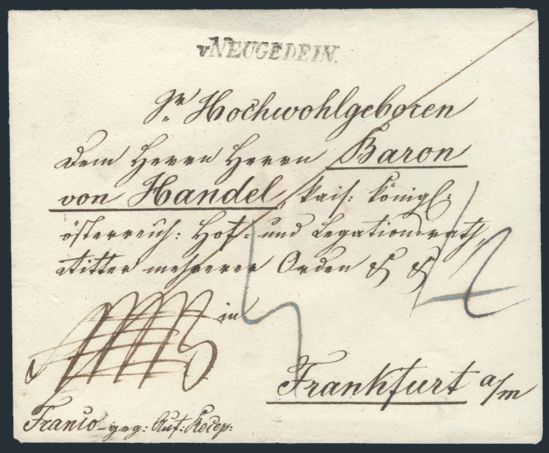 v. NEUGEDEIN.
Sr. Hochwohlgeboren
Dem Herrn Herrn Baron
von Handel, kais: königl:
österreich: Hof- und Legationsrath,
Ritter mehrerer Orden
in
Frankfurt a/m
Franco geg: Auf: Recep: